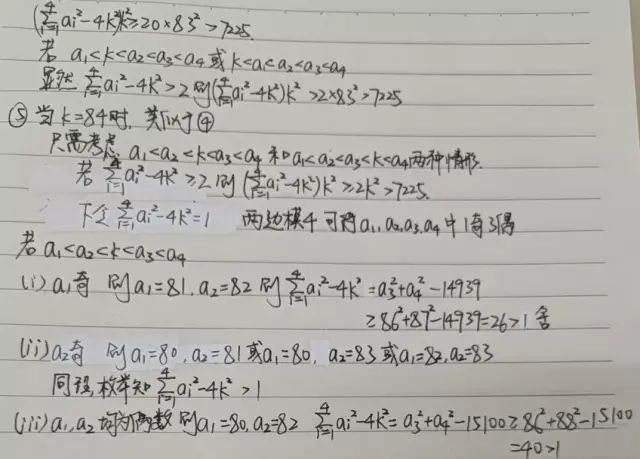 (∑_{i=1}^{4} ai²-4k²)k²≥20×83²>7225.
若 a₁<k<a₂<a₃<a₄ 或 k<a₁<a₂<a₃<a₄
显然 ∑_{i=1}^{4} ai²-4k²>2 则(∑_{i=1}^{4} ai²-4k²)k²>2×83²>7225
⑤ 当 k=84时, 类似于④
只需考虑 a₁<a₂<k<a₃<a₄ 和 a₁<a₂<a₃<k<a₄两种情形.
若 ∑_{i=1}^{4} ai²-4k²≥2 则 (∑_{i=1}^{4} ai²-4k²)k²≥2k²>7225.
下令 ∑_{i=1}^{4} ai²-4k²=1 两边模4可得 a₁,a₂,a₃,a₄ 中 1奇3偶
若 a₁<a₂<k<a₃<a₄
(i) a₁奇 则 a₁=81, a₂=82 则 ∑_{i=1}^{4} ai²-4k²=a₃²+a₄²-14939
≥86²+87²-14939=26>1 舍
(ii) a₂奇 则 a₁=80, a₂=81 或 a₁=80, a₂=83 或 a₁=82, a₂=83
同理, 枚举知 ∑_{i=1}^{4} ai²-4k²>1
(iii) a₁, a₂ 均为偶数 则 a₁=80, a₂=82 ∑_{i=1}^{4} ai²-4k²=a₃²+a₄²-15100≥86²+88²-15100
=40>1